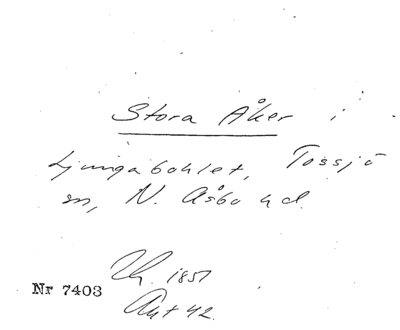 Stora Åker i
Ljungabohlet, Tossjö
sn, N. Åsbo hd.
1851
Nr 7403
Akt 42.